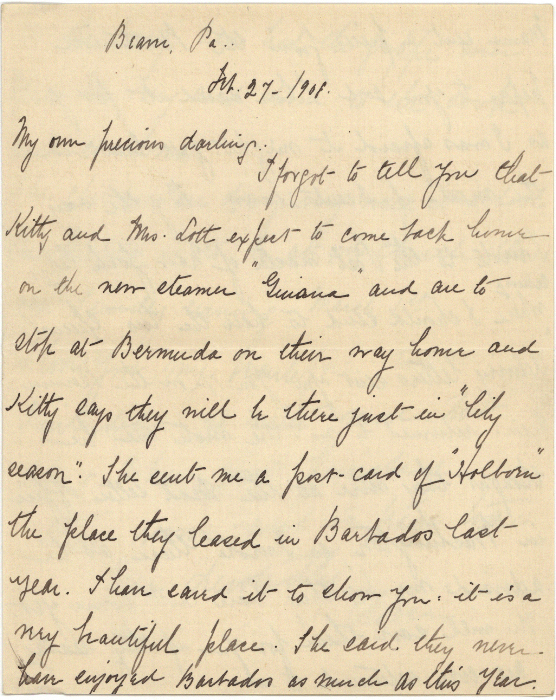 Beaver, Pa..
Feb. 27 - 1908.
My own precious darling:
I forgot to tell you that
Kitty and Mrs. Lott expect to come back home
on the new steamer "Guiana" and are to
stop at Bermuda on their way home and
Kitty says they will be there just in "lily
season". She sent me a post-card of "Holborn"
the place they leased in Barbados last
year. I have saved it to show you: it is a
very beautiful place. She said they never
have enjoyed Barbados as much as this year.